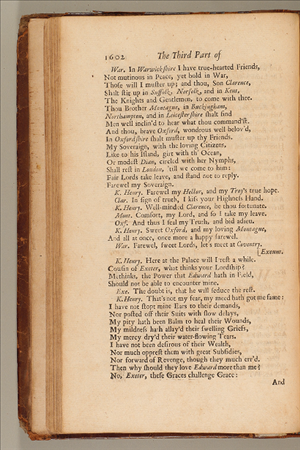 1602 The Third Part of
War. In Warwickshire I have true-hearted Friends,
Not mutinous in Peace, yet bold in War,
Those will I muster up; and thou, Son Clarence,
Shalt stir up in Suffolk, Norfolk, and in Kent,
The Knights and Gentlemen, to come with thee.
Thou Brother Montague, in Buckingham,
Northampton, and in Leicestershire shalt find
Men well inclin'd to hear what thou command'st.
And thou, brave Oxford, wondrous well belov'd,
In Oxfordshire shalt muster up thy Friends.
My Soveraign, with the loving Citizens,
Like to his Island, girt with th' Ocean,
Or modest Dian, circled with her Nymphs,
Shall rest in London, 'till we come to him:
Fair Lords take leave, and stand not to reply.
Farewel my Soveraign.
K. Henry. Farewel my Hector, and my Troy's true hope.
Clar. In sign of truth, I kiss your Highness Hand.
K. Henry. Well-minded Clarence, be thou fortunate.
Mont. Comfort, my Lord, and so I take my leave.
Oxf. And thus I seal my Truth, and bid adieu.
K. Henry. Sweet Oxford, and my loving Montague,
And all at once, once more a happy farewel.
War. Farewel, sweet Lords, let's meet at Coventry.
[Exeunt.
K. Henry. Here at the Palace will I rest a while.
Cousin of Exeter, what thinks your Lordship?
Methinks, the Power that Edward hath in Field,
Should not be able to encounter mine.
Exe. The doubt is, that he will seduce the rest.
K. Henry. That's not my fear, my meed hath got me fame:
I have not stopt mine Ears to their demands,
Nor posted off their Suits with slow delays,
My pity hath been Balm to heal their Wounds,
My mildness hath allay'd their swelling Griefs,
My mercy dry'd their water-flowing Tears.
I have not been desirous of their Wealth,
Nor much opprest them with great Subsidies,
Nor forward of Revenge, though they much err'd.
Then why should they love Edward more than me?
No, Exeter, these Graces challenge Grace:
And